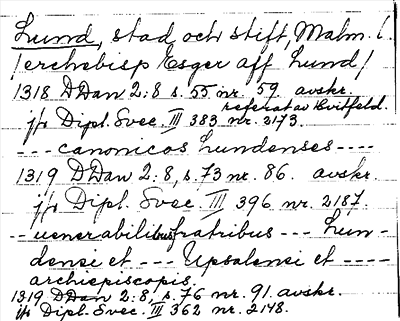 Lund, stad och stift, Malm. l.
/erchebisp Esger aff Lund/
1318 DDan 2:8 s. 55 nr. 59. avskr.
referat av Hvitfeld.
jfr Dipl. Svec. III 383 nr. 2173.
--- canonicos Lundenses ----
1319 DDan 2:8, s. 73 nr. 86. avskr.
jfr Dipl. Svec. III 396 nr. 2187.
-- uenerabilibus fratribus --- Lun-
densi et --- Upsalensi et ----
archiepiscopis.
1319 DDan 2:8, s. 76 nr. 91. avskr.
jfr Dipl. Svec. III 362 nr. 2148.